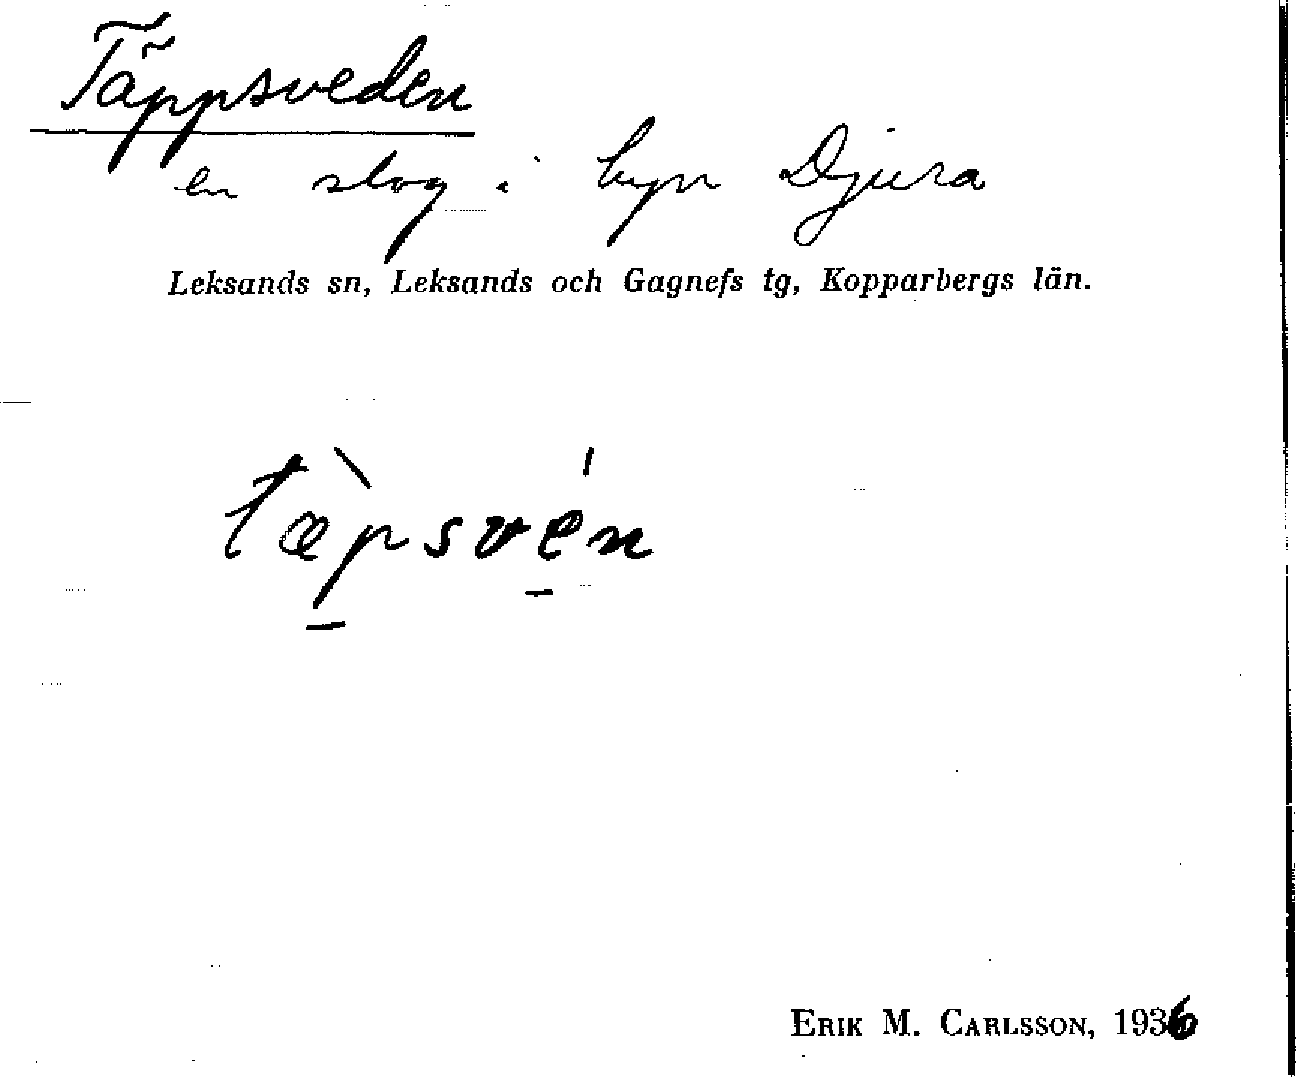 Täppsveden
en slog i byn Djura
Leksands sn, Leksands och Gagnefs tg, Kopparbergs län.
tæ̀psvén
ERIK M. CARLSSON, 1936